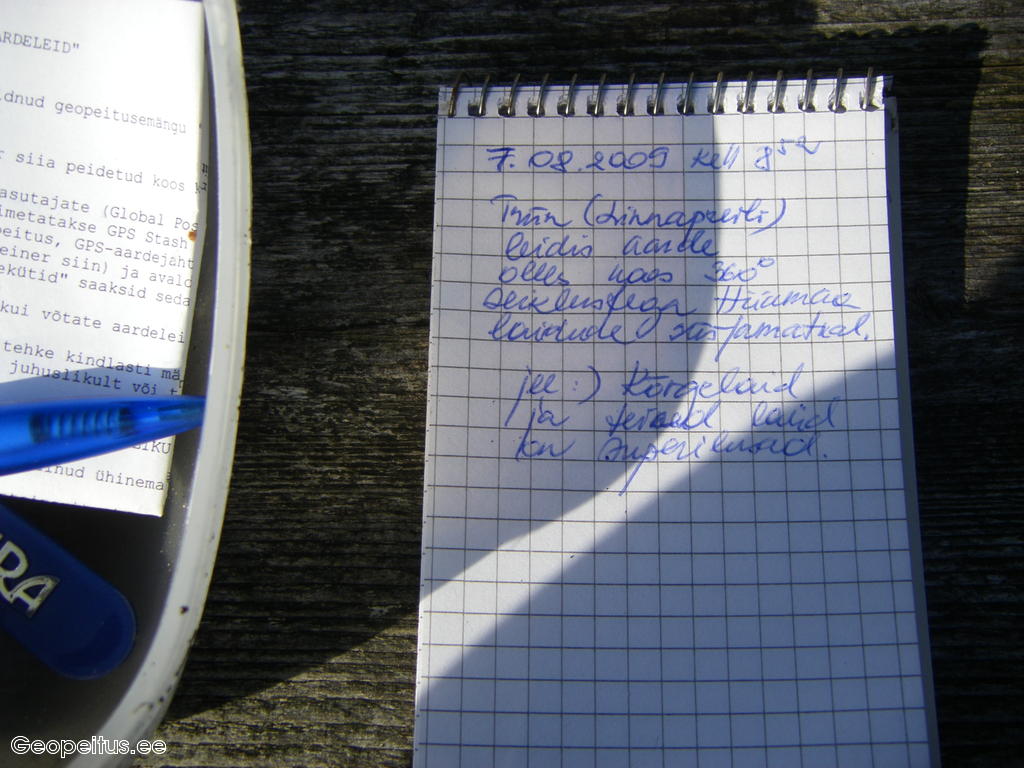 ARDELEID"
idnud geopeitusemängu
siia peidetud koos
asutajate (Global Pos
imetatakse GPS Stash
peitus, GPS-aardejaht
einer siin) ja avald
ekütid" saaksid seda
kui võtate aardelei
tehke kindlasti mä
juhuslikult või t
inud ühinema
RA
7.08.2009 kell 8 52
Triin (Linnapreili)
leidis aarde
olles koos 360°
seiklustega Hiiumaa
laidude süstamatkal.
jee :) Kõrgelaid
ja teised laid
on superilusad.
Geopeitus.ee